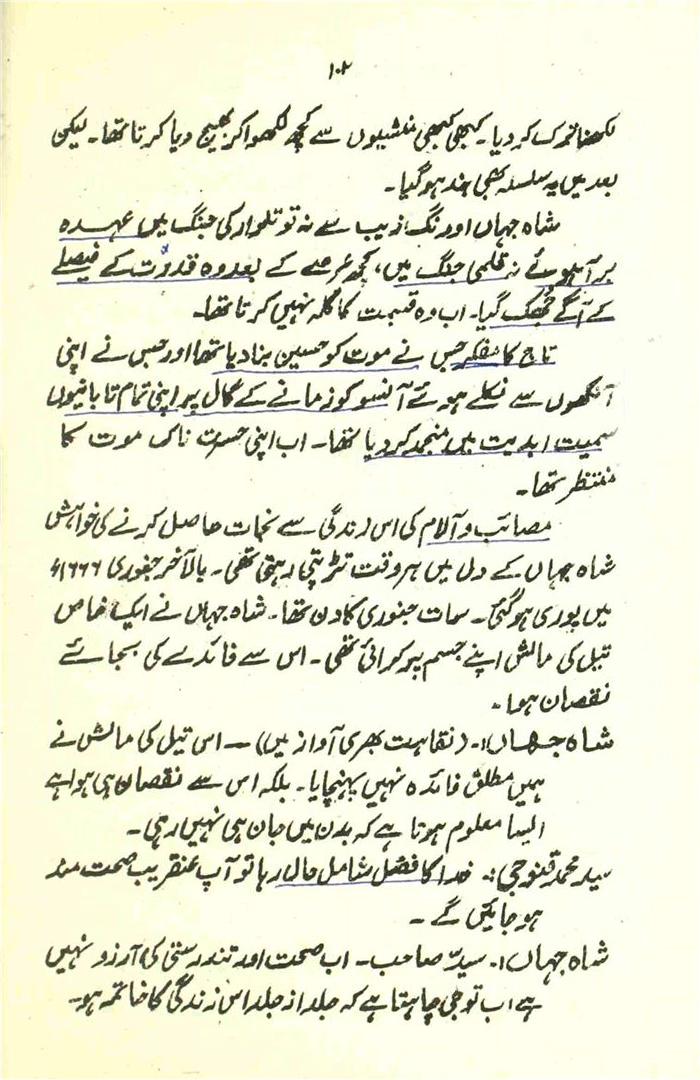 ۱۰۲
لکھنا ترک کر دیا۔ کبھی کبھی منشیوں سے کچھ لکھوا کر بھیج دیا کرتا تھا۔ لیکن
بعد میں یہ سلسلہ بھی بند ہو گیا۔
شاہ جہاں اورنگ زیب سے نہ تو تلوار کی جنگ میں عہدہ
بر آ ہو سئے نہ قلمی جنگ میں، کچھ عرصے کے بعد وہ قدرت کے فیصلے
کے آگے جھک گیا۔ اب وہ قسمت کا گلہ نہیں کرتا تھا۔
تاج کا مفکر جس نے موت کو حسین بنا دیا تھا اور جس نے اپنی
آنکھوں سے نکلے ہوئے آنسو کو زمانے کے گال پر اپنی تمام تابانیوں
سمیت ابدیت میں منجمد کر دیا تھا۔ اب اپنی حسرت ناک موت کا
منتظر تھا۔
مصائب و آلام کی اس زندگی سے نجات حاصل کرنے کی خواہش
شاہ جہاں کے دل میں ہر وقت تڑپتی رہتی تھی۔ بالآخر جنوری ۱۶۶۶ء
میں پوری ہو گئی۔ سات جنوری کا دن تھا۔ شاہ جہاں نے ایک خاص
تیل کی مالش اپنے جسم پر کرائی تھی۔ اس سے فائدے کی بجائے
نقصان ہوا۔
شاہ جہاں:۔ (نقاہت بھری آواز میں) — اس تیل کی مالش نے
ہمیں مطلق فائدہ نہیں پہنچایا۔ بلکہ اس سے نقصان ہی ہوا ہے
ایسا معلوم ہوتا ہے کہ بدن میں جان ہی نہیں رہی۔
سید محمد قنوجی:۔ خدا کا فضل شامل حال رہا تو آپ عنقریب صحت مند
ہو جائیں گے۔
شاہ جہاں:۔ سیّد صاحب۔ اب صحت اور تندرستی کی آرزو نہیں
ہے اب تو جی چاہتا ہے کہ جلد از جلد اس زندگی کا خاتمہ ہو۔